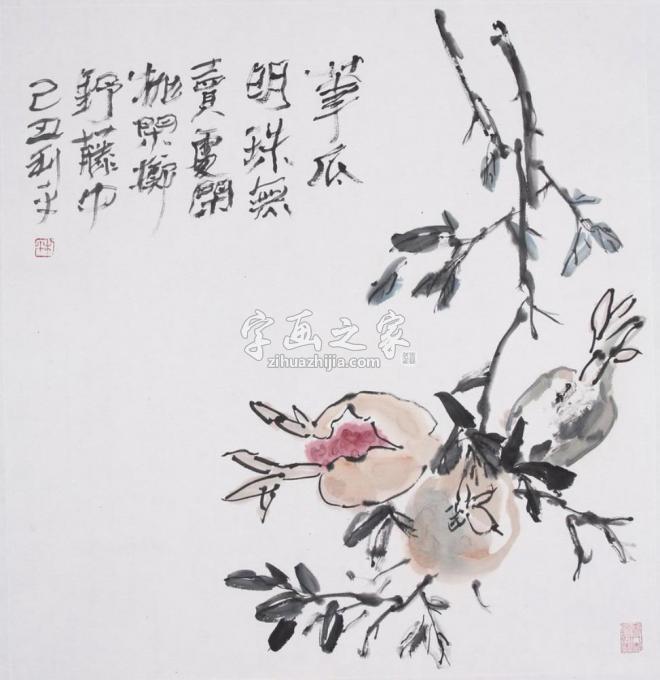 筆底
明珠無
賣處閑
拋閑擲
野藤中
己丑利平
字画之家
zihuazhijia.com